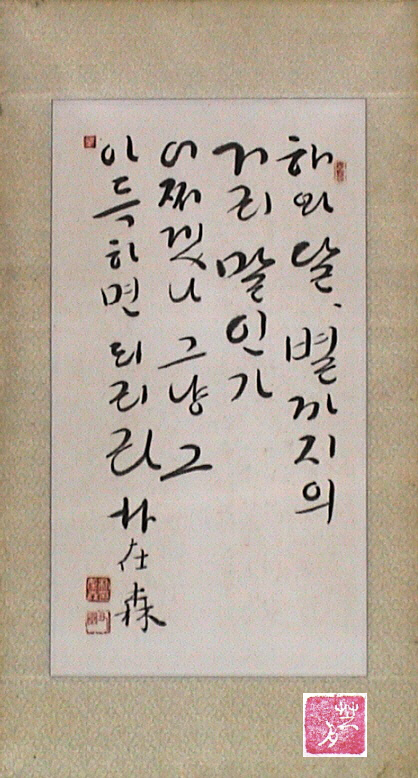 해와 달, 별까지의
거리 말인가
어쩌겠나 그냥 그
아득하면 되리라 朴在森